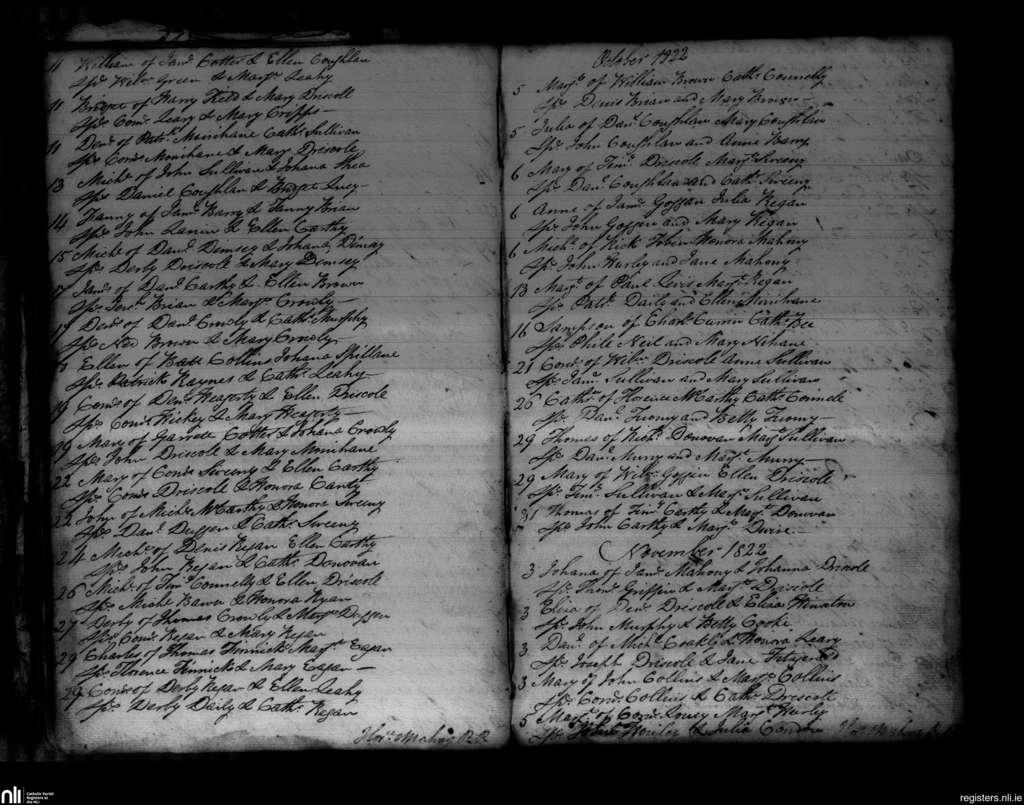 11 William of Jams Cotter & Ellen Coughlan
Sps Willm Green & Margt Leahy
11 Bridget of Harry Field & Mary Driscoll
Sps Corns Leary & Mary Cripps
11 Denis of Patk Minihane Cathe Sullivan
Sps Corns Minihane & Mary Driscole
13 Michl of John Sullivan & Johana Shea
Sps Daniel Coughlan & Bridget
14 Fanny of Jams Barry & Fanny Brian
Sps John & Ellen Carthy
15 Michl of Danl Dimsey & Johana Dimsey
Sps Derby Driscole & Mary Demsey
17 Jams of Danl Carthy & Ellen Brown
Sps Brian & Margt Crowly
17 Denis of Danl Crowly & Cathe Murphy
Sps Ned Brown & Mary Crowly
Ellen of Batt Collins Johana Skillane
Sps Patrick Haynes & Cathe Leahy
19 Corns of Denis Heaferty & Ellen Driscole
Sps Corns Hickey & Mary Heaferty
19 Mary of Garrett Cotter & Johana Crowly
Sps John Driscole & Mary Minihane
22 Mary of Corns Sweeny & Ellen Carthy
Sps Corns Driscole & Honora Canty
22 John of Michl McCarthy & Honora Sweeny
Sps Danl Duggan & Cathe Sweeny
24 Michl of Denis Regan Ellen Carthy
Sps John Regan & Cathe Donovan
26 Michl of Timy Connelly & Ellen Driscole
Sps Michl & Honora Ryan
27 Derby of Thomas Crowly & Margt Duggan
Sps Corns Regan & Mary Regan
29 Charles of Thomas Finnick Margt Eagan
Sps Florence Finnick & Mary Eagan
29 Corns of Derby Regan & Ellen Leahy
Sps Derby Daily & Cathe Regan
Mahony P.P.
October 1822
5 Margt of William Brown Cathe Connolly
Sps Denis Brian and Mary Brown
5 Julia of Danl Coughlan Mary Coughlan
Sps John Coughlan and Anne Barry
6 Mary of Timy Driscole Margt Sweeny
Sps Danl Coughlan and Cathe Sweeny
6 Anne of Jams Goggan Julia Regan
Sps John Goggin and Mary Regan
6 Michl of Rick Tobin Honora Mahony
Sps John Hurley and Jane Mahony
13 Margt of Paul Lewis Margt Regan
Sps Patk Daily and Ellen Minihane
16 Sampson of Charls Cathe Bee
Sps Phile Neil and Mary Nihane
21 Corns of Willm Driscole Anne Sullivan
Sps Jams Sullivan and Mary Sullivan
25 Cathe of Florence McCarthy Cathe Connele
Sps Danl Twomy and Betty Twomy
29 Thomas of Donovan Margt Sullivan
Sps Danl Murry and Margt Murry
29 Mary of Willm Goggin Ellen Driscole
Sps Timy Sullivan & Margt Sullivan
31 Thomas of Timy Carthy & Margt Donovan
Sps John Carthy & Margt
November 1822
3 Johana of Jams Mahony & Johanna Driscole
Sps Thoms Griffin & Margt Driscole
3 Eliza of Denis Driscole & Eliza
Sps John Murphy & Betty Cooke
3 Danl of Michl & Honora Leary
Sps Joseph Driscole & Jane Fitzgerald
3 Mary of John Collins & Margt Collins
Sps Corns Collins & Cathe Driscole
5 Margt of Corns Margt Hurly
Sps Hurley & Julia Condon
nli
Catholic Parish
Registers at
the NLI
registers.nli.ie